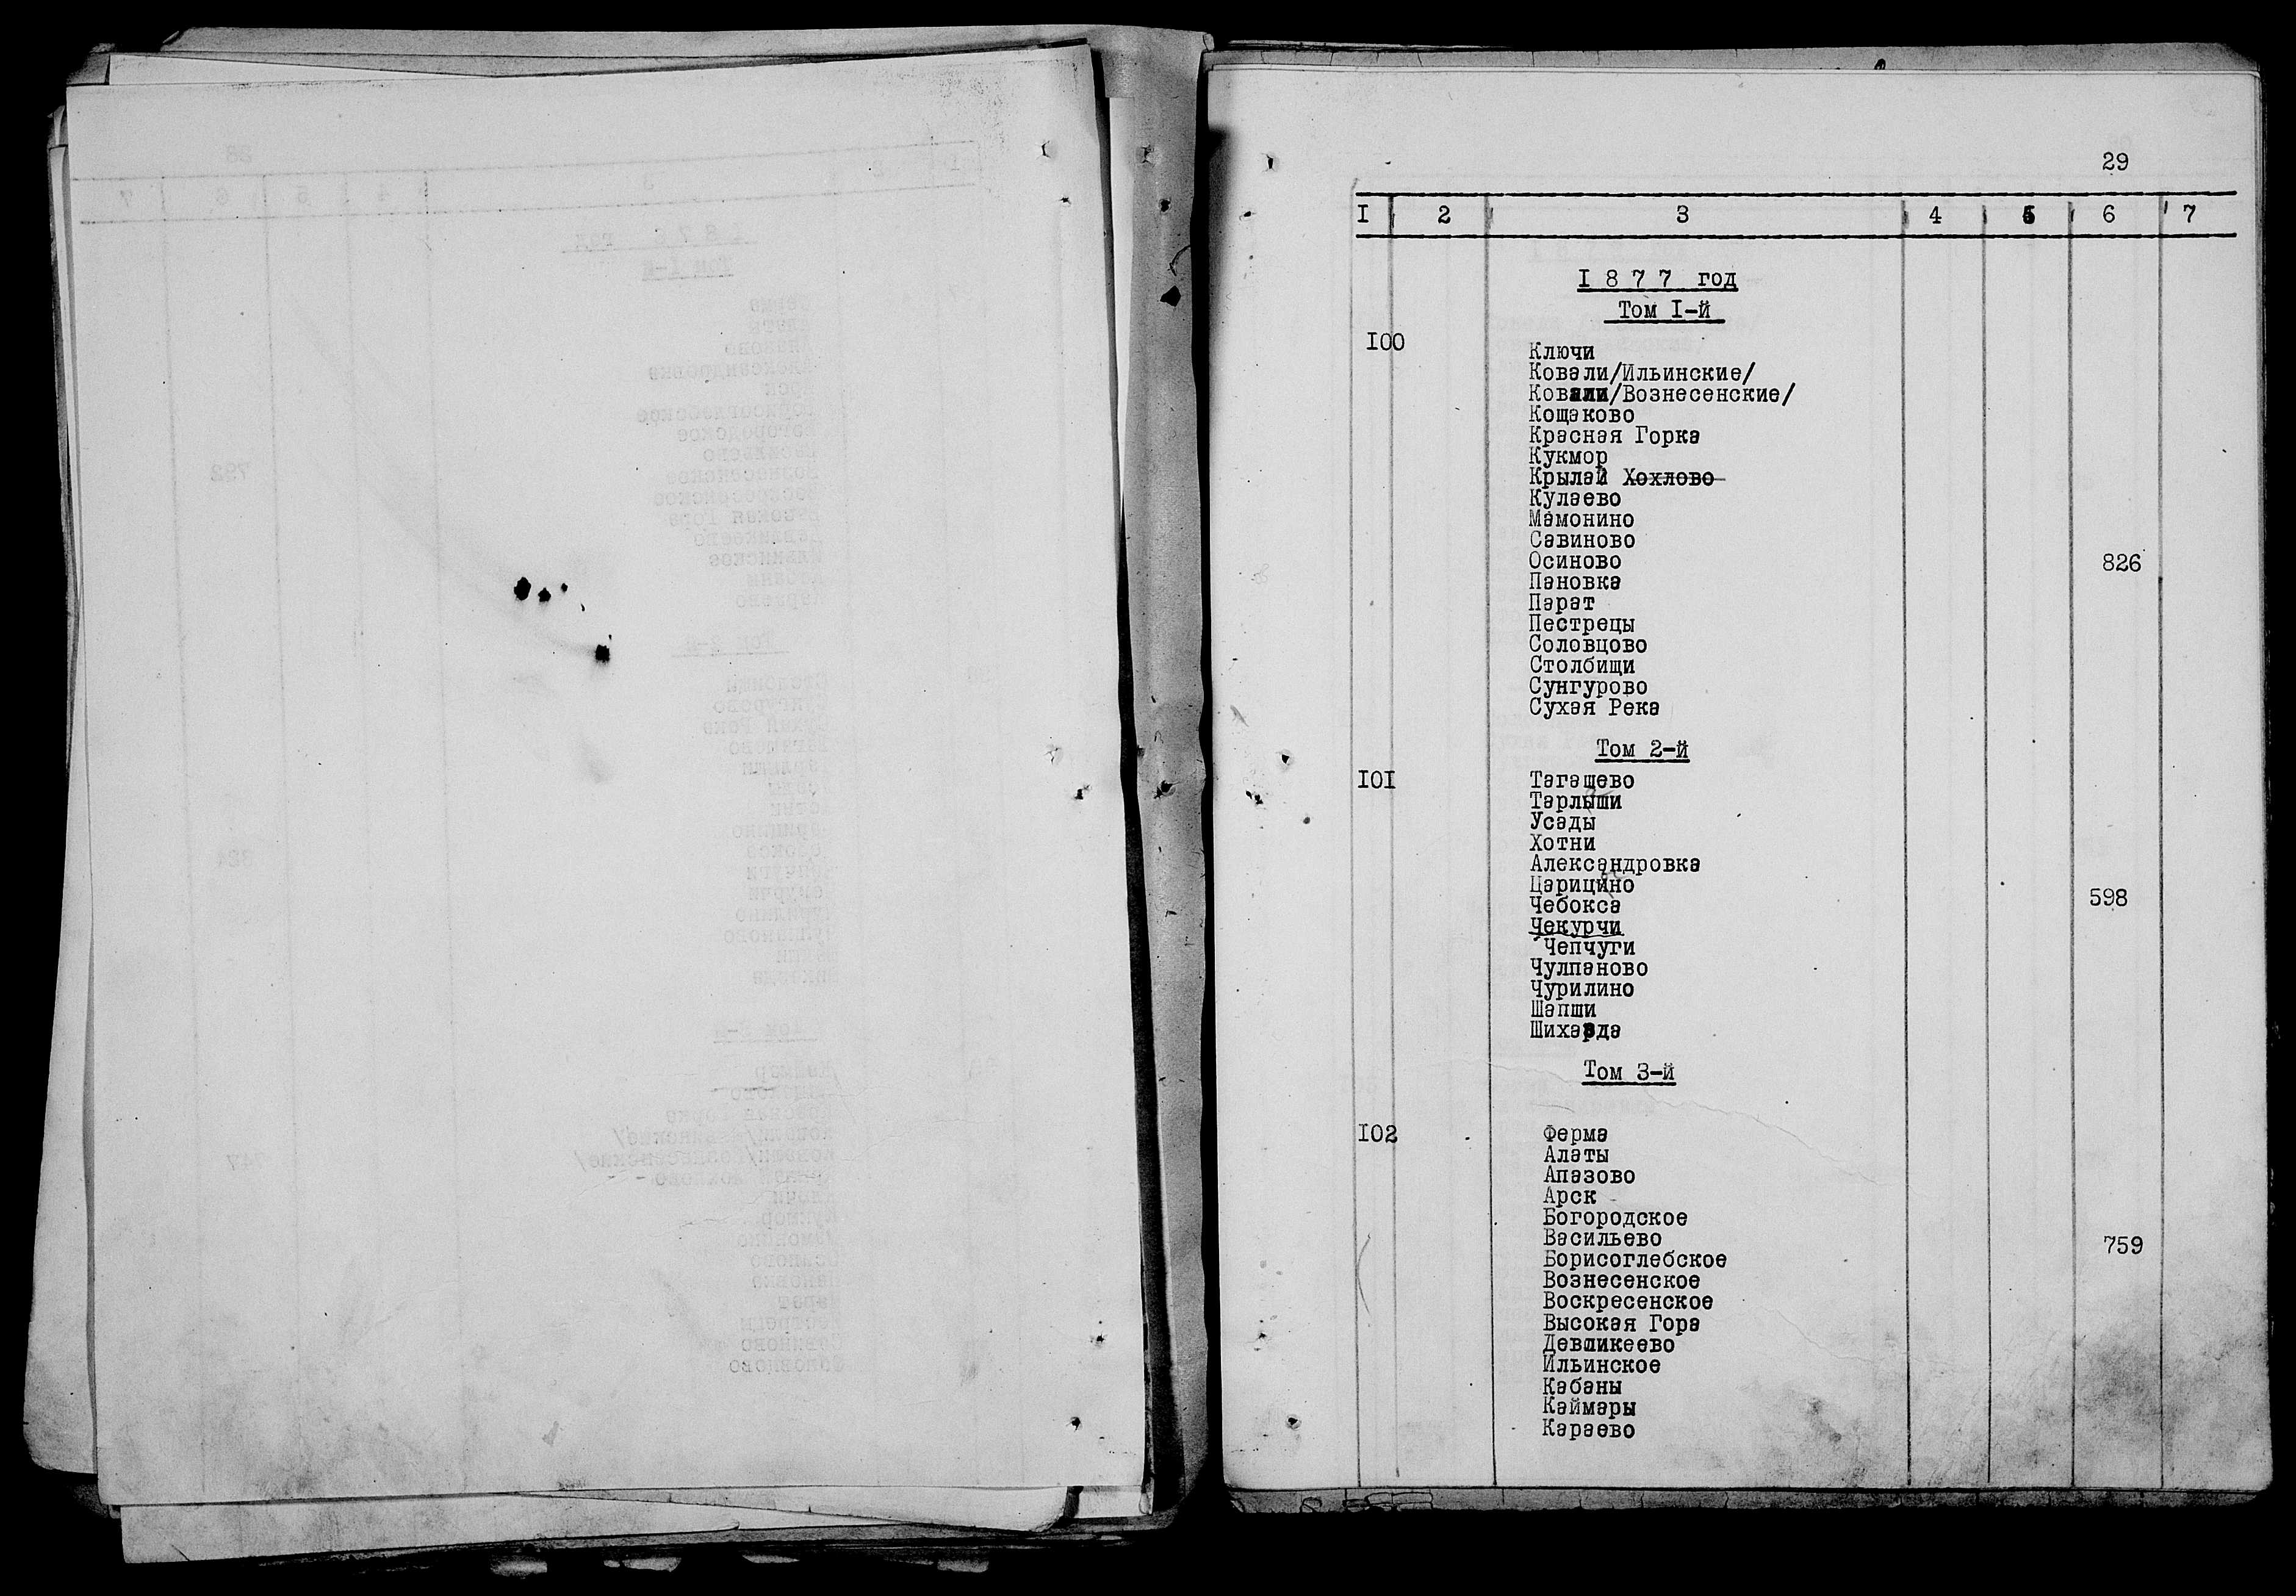 29
I 2 3 4 5 6 7
I 8 7 7 год
Том I-й
I00
Ключи
Ковали/Ильинские/
Ковали/Вознесенские/
Кощаково
Красная Горка
Кукмор
Крылай Хохлово
Кулаево
Мамонино
Савиново
Осиново 826
Пановка
Парат
Пестрецы
Соловцово
Столбищи
Сунгурово
Сухая Река
Том 2-й
I0I Тагашево
Тарлыши
Усады
Хотни
Александровка
Царицино
Чебокса 598
Чекурчи
Чепчуги
Чулпаново
Чурилино
Шапши
Шихазда
Том 3-й
I02 Ферма
Алаты
Апазово
Арск
Богородское
Васильево
Борисоглебское 759
Вознесенское
Воскресенское
Высокая Гора
Девликеево
Ильинское
Кабаны
Каймары
Караево